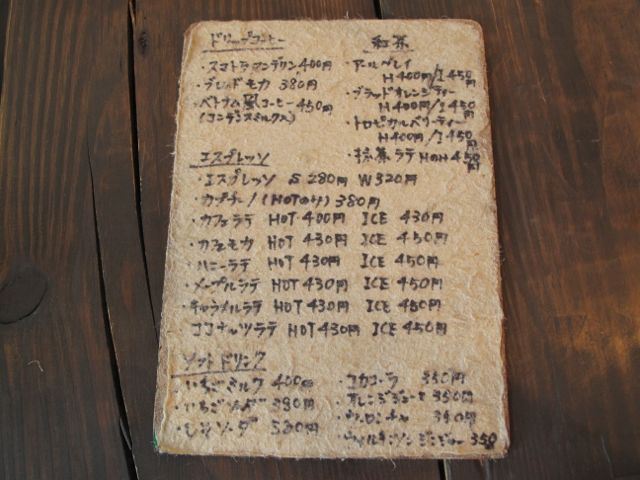 ドリップコーヒー
・スマトラマンデリン 400円
・ブレンドモカ 380円
・ベトナム風コーヒー 450円
(コンデンスミルク入)
紅茶
・アールグレイ
H 400円/I 450円
・ブラッドオレンジティー
H 400円/I 450円
・トロピカルベリーティー
H 400円/I 450円
・抹茶ラテ 450円
エスプレッソ
・エスプレッソ S 280円 W 320円
・カプチーノ(HOTのみ) 380円
・カフェラテ HOT 400円 ICE 430円
・カフェモカ HOT 430円 ICE 450円
・ハニーラテ HOT 430円 ICE 450円
・メープルラテ HOT 430円 ICE 450円
・キャラメルラテ HOT 430円 ICE 450円
ココナッツラテ HOT 430円 ICE 450円
ソフトドリンク
・いちごミルク 400円
・いちごソーダ
・しそソーダ
・コカコーラ 350円
・オレンジジュース 350円
・ウーロンチャ
・ウィルキンソンジンジャー 350